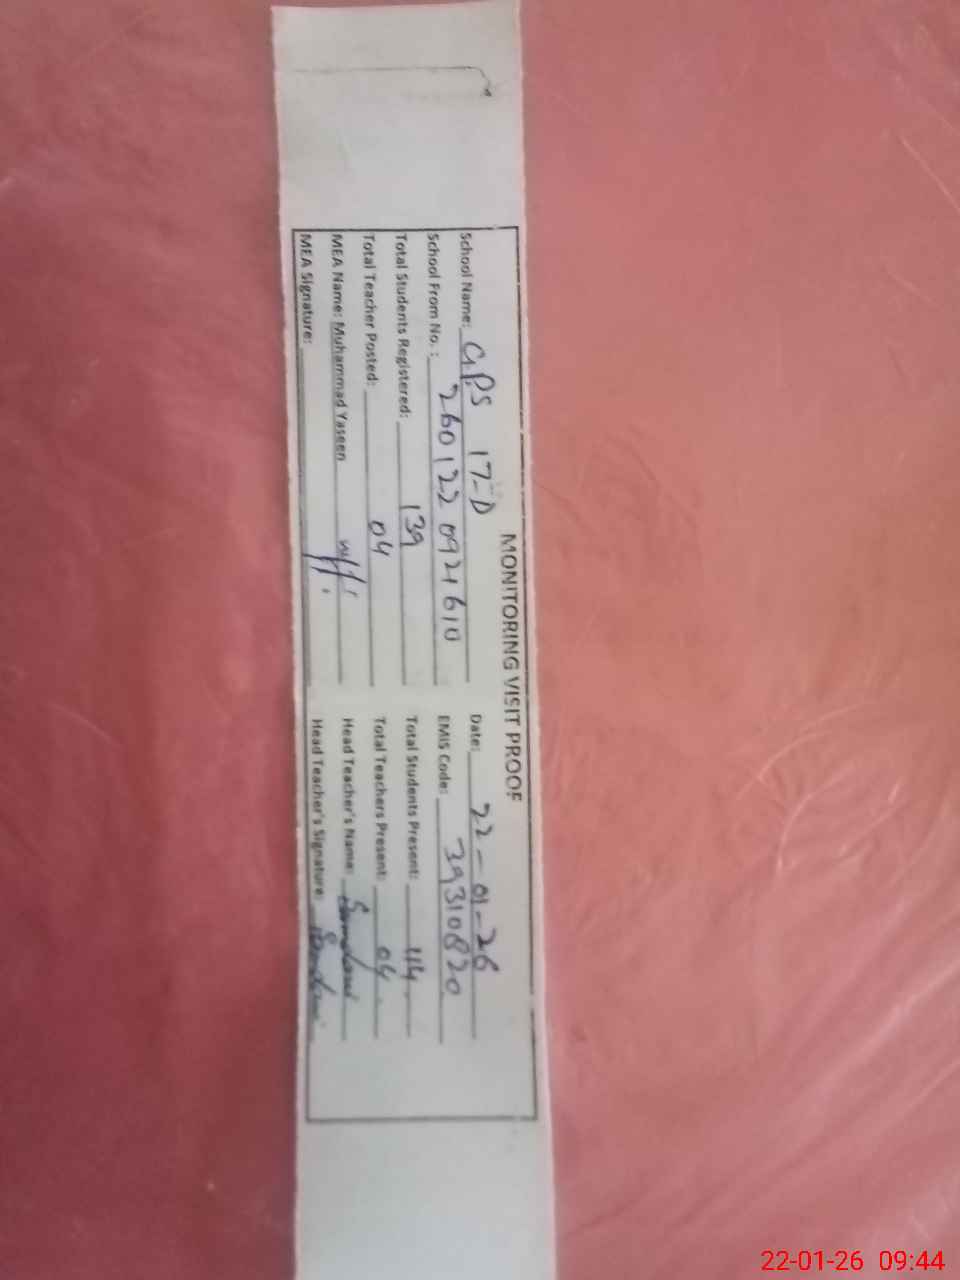 MONITORING VISIT PROOF
School Name: GPS 17-D Date: 22-01-26
School From No. : 260122 0921610 EMIS Code: 39310820
Total Students Registered: 139 Total Students Present: 114
Total Teacher Posted: 04 Total Teachers Present: 04
MEA Name: Muhammad Yaseen Head Teacher's Name:
MEA Signature: Head Teacher's Signature:
22-01-26 09:44